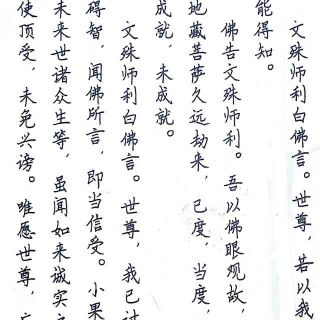 文殊师利白佛言。世尊，若以我
能得知。
佛告文殊师利。吾以佛眼观故，
地藏菩萨久远劫来，已度，当度，
成就，未成就。
文殊师利白佛言。世尊，我已过
碍智，闻佛所言，即当信受。小果
未来世诸众生等，虽闻如来诚实之
使顶受，未免兴谤。唯愿世尊，